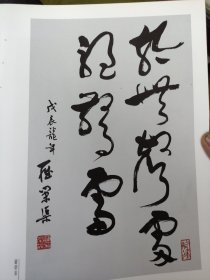 於無聲處
聽驚雷
戊辰龍年